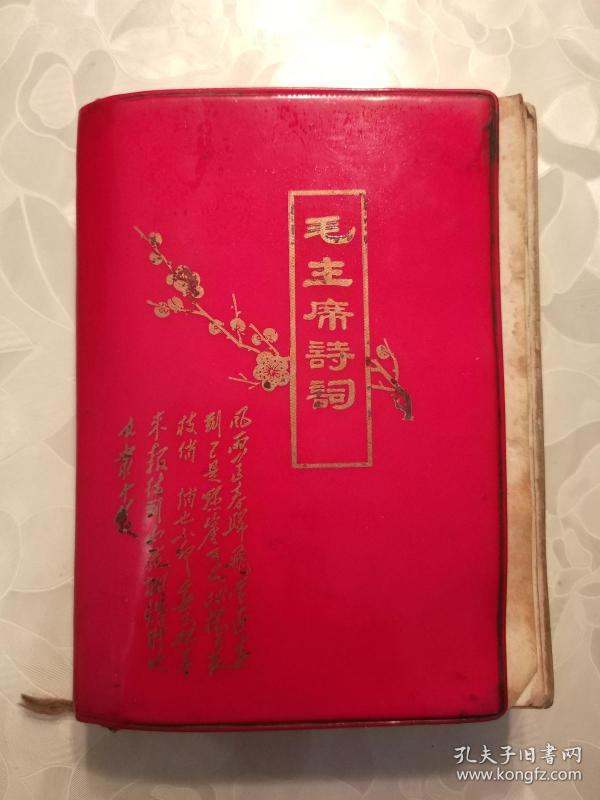 毛主席詩詞
风雨送春归飞雪迎春
到已是悬崖百丈冰犹有花
枝俏俏也不争春只把春
来报待到山花烂漫时她
在丛中笑
孔夫子旧书网
www.kongfz.com